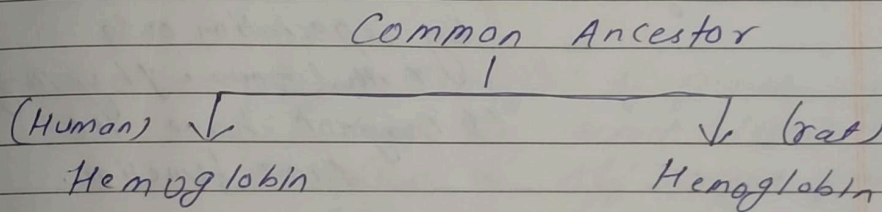 Common Ancestor
(Human) (rat)
Hemoglobin Hemoglobin